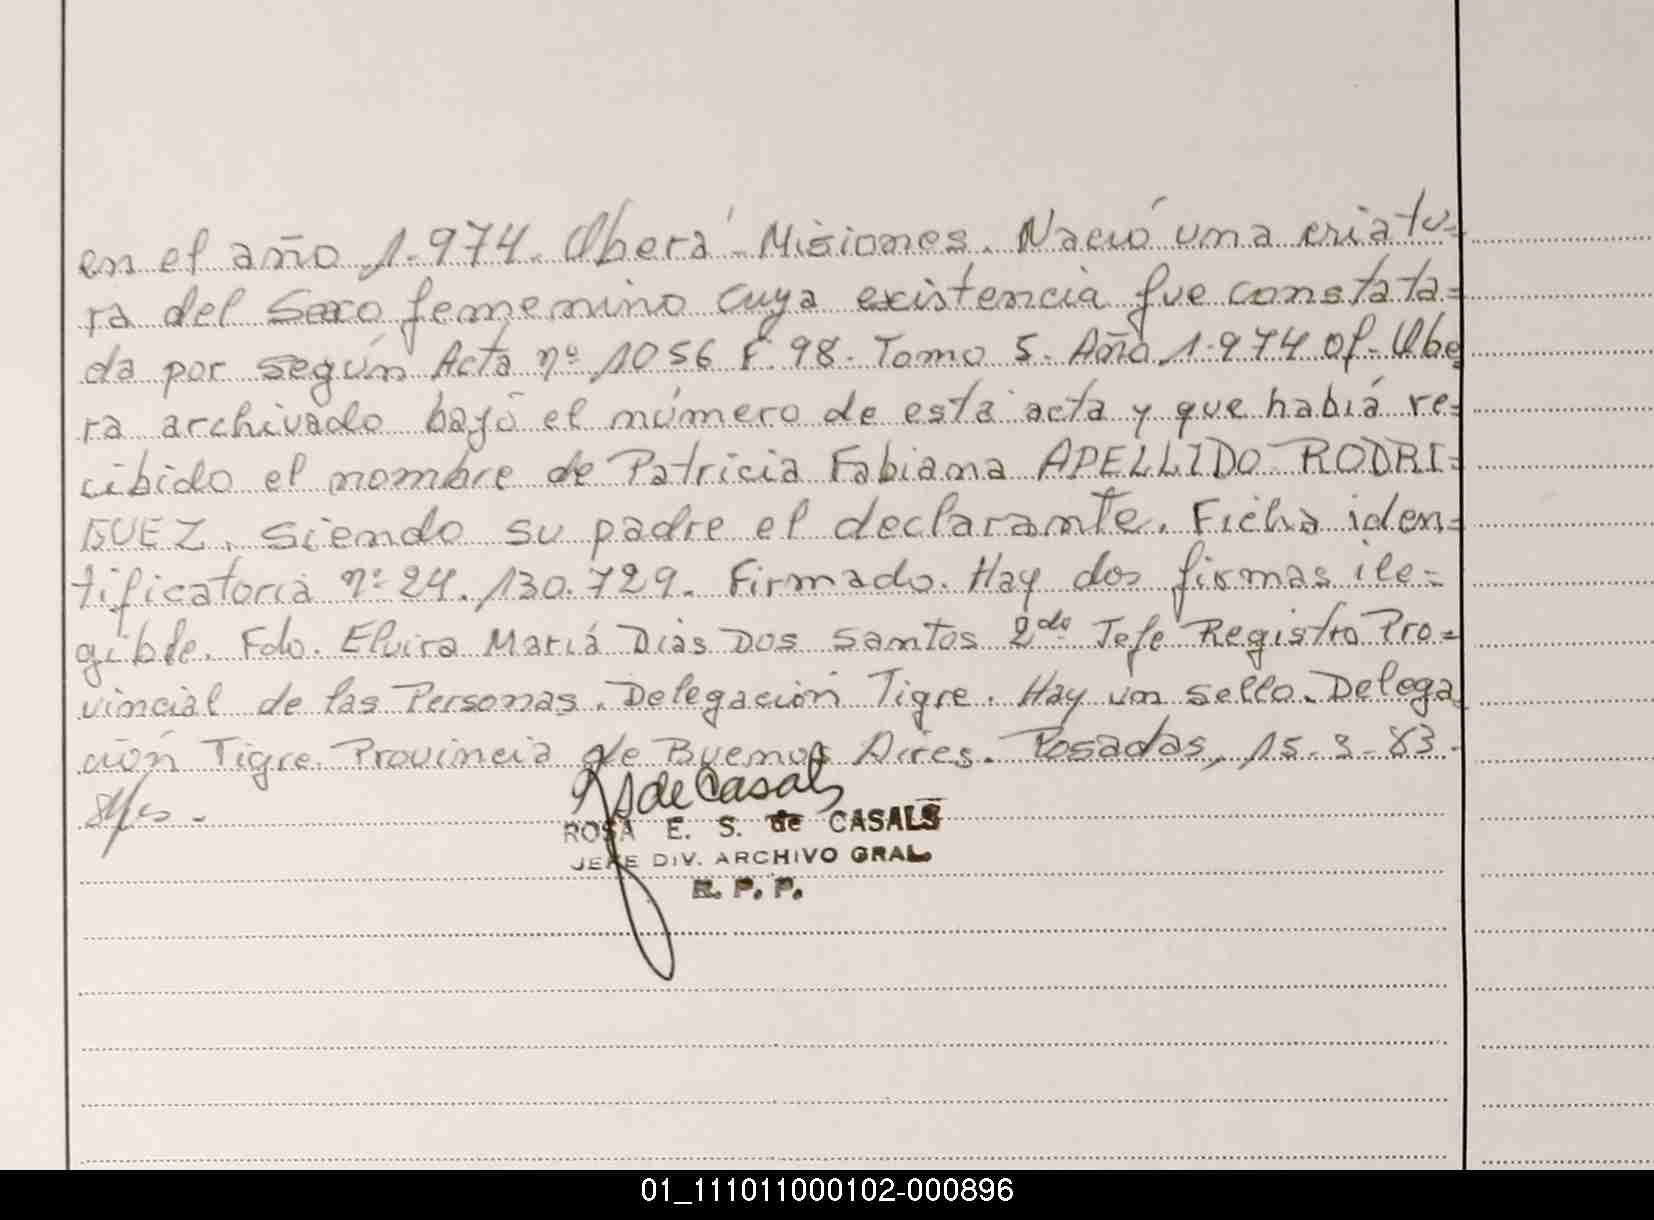 en el año 1.974. Oberá - Misiones. Nació una criatu=
ra del Sexo femenino cuya existencia fue constata=
da por según Acta nº 1056 F. 98. Tomo 5. Año 1.974 Of. Obe
ra archivado bajo el número de esta acta y que habiá re=
cibido el nombre de Patricia Fabiana APELLIDO RODRI=
GUEZ. siendo su padre el declarante. Ficha iden=
tificatoria nº 24.130.729. Firmado. Hay dos firmas ile=
gible. Fdo. Elvira Mariá Dias Dos Santos 2do Jefe Registro Pro=
vincial de las Personas. Delegación Tigre. Hay un sello. Delega
ción Tigre. Provincia de Buenos Aires. Posadas, 15-3-83.
de Casals
ROSA E. S. de CASALS
JEFE DIV. ARCHIVO GRAL.
R. P. P.
01_111011000102-000896